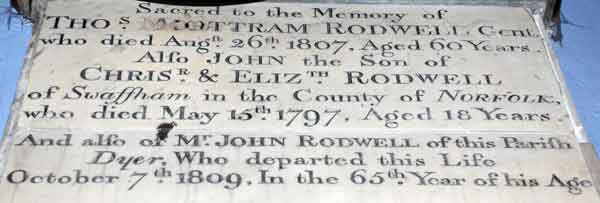 Sacred to the Memory of
THOS MOTTRAM RODWELL Gent.
who died Augst. 26th 1807. Aged 60 Years.
Also JOHN the Son of
CHRISR. & ELIZTH. RODWELL
of Swaffham in the County of NORFOLK,
who died May 15th. 1797. Aged 18 Years
And also of Mr. JOHN RODWELL of this Parish
Dyer, Who departed this Life
October 7th. 1809. In the 65th. Year of his Age